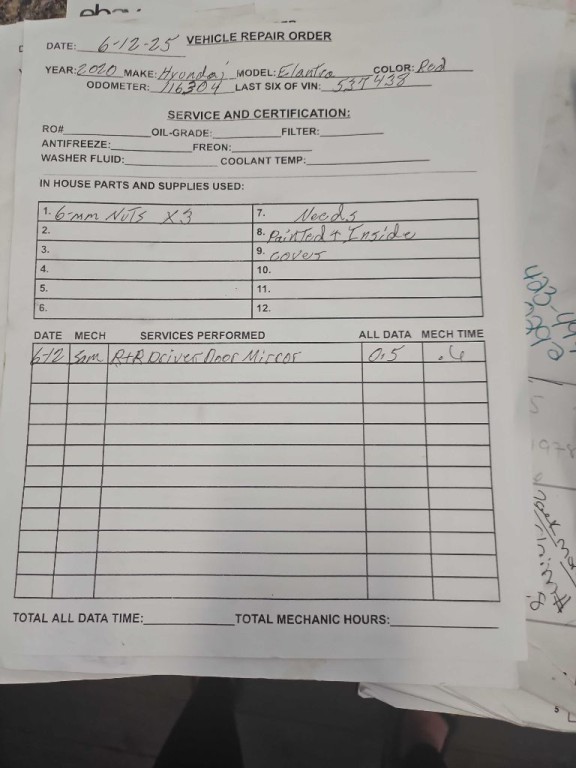 DATE: 6-12-25 VEHICLE REPAIR ORDER
YEAR: 2020 MAKE: Hyundai MODEL: Elantra COLOR: Red
ODOMETER: 116304 LAST SIX OF VIN: 537438
SERVICE AND CERTIFICATION:
RO# OIL-GRADE: FILTER:
ANTIFREEZE: FREON:
WASHER FLUID: COOLANT TEMP:
IN HOUSE PARTS AND SUPPLIES USED:
1. 6-mm NUTS X3 7. Needs
2. 8. Painted + Inside
3. 9. cover
4. 10.
5. 11.
6. 12.
DATE MECH SERVICES PERFORMED ALL DATA MECH TIME
6-12 Sam R+R Driver Door Mirror 0.5 .6
TOTAL ALL DATA TIME: TOTAL MECHANIC HOURS: